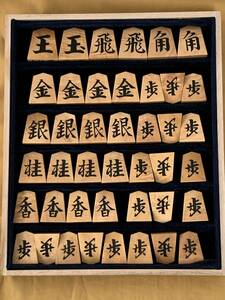 王玉飛飛角角
金金金金歩歩歩
銀銀銀銀歩歩歩
桂桂桂桂歩歩歩
香香香香歩歩歩
歩歩歩歩歩歩